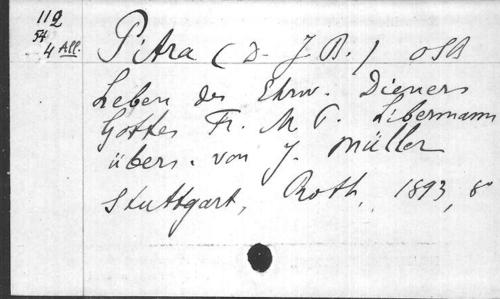 112
54
4 All.
Pitra (D. J. B.) OSB
Leben des Ehrw. Dieners
Gottes Fr. M. P. Libermann
übers. von J. Müller
Stuttgart, Roth, 1893, 8°